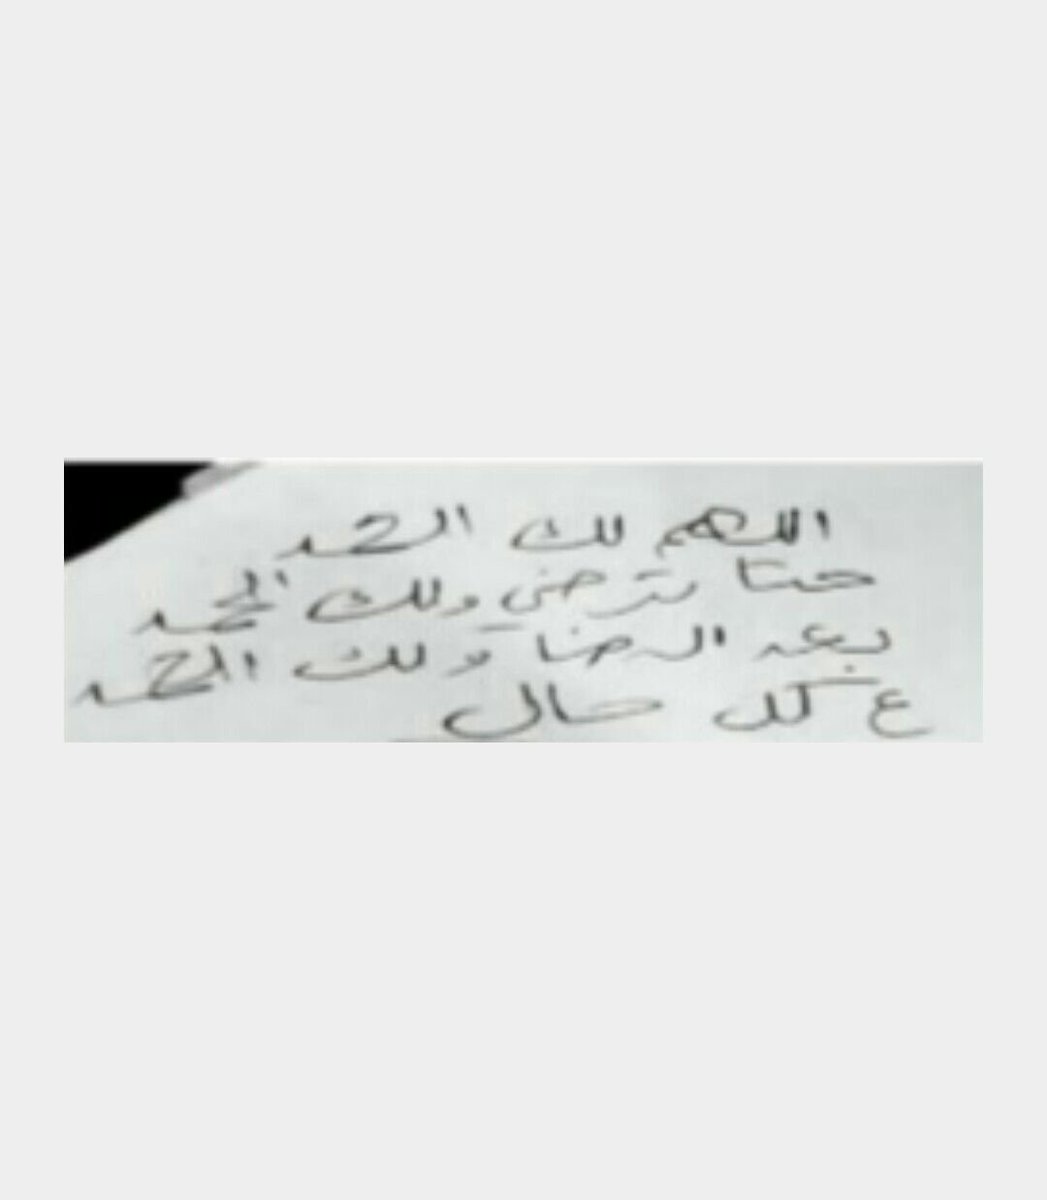 اللهم لك الحمد
حتا ترضى ولك الحمد
بعد الرضا ولك الحمد
ع كل حال